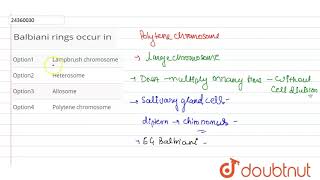 24360030
Balbiani rings occur in
Option1 Lampbrush chromosome
Option2 Heterosome
Option3 Allosome
Option4 Polytene chromosome
Polytene chromosome
→ Large chromosome
→ DNA - multiply so many time - without
cell division
→ Salivary gland cell -
diptera → chironomus -
→ EG Balbiani -
doubtnut